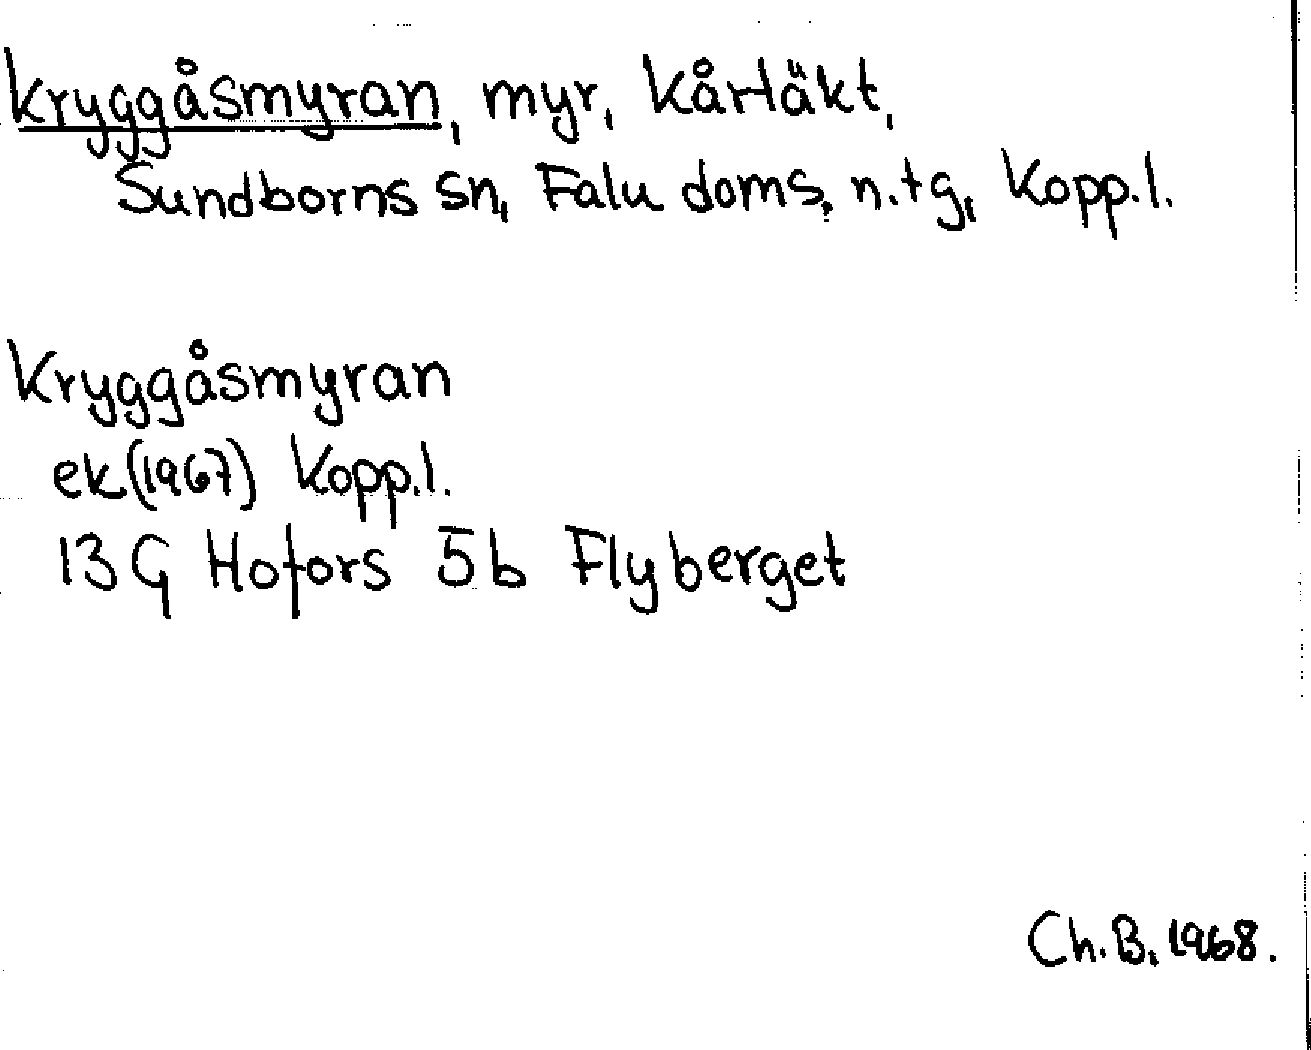 Kryggåsmyran, myr, Kårtäkt,
Sundborns sn, Falu doms. n.tg, Kopp.l.
Kryggåsmyran
ek(1967) Kopp.l.
13G Hofors 5b Flyberget
Ch.B. 1968.